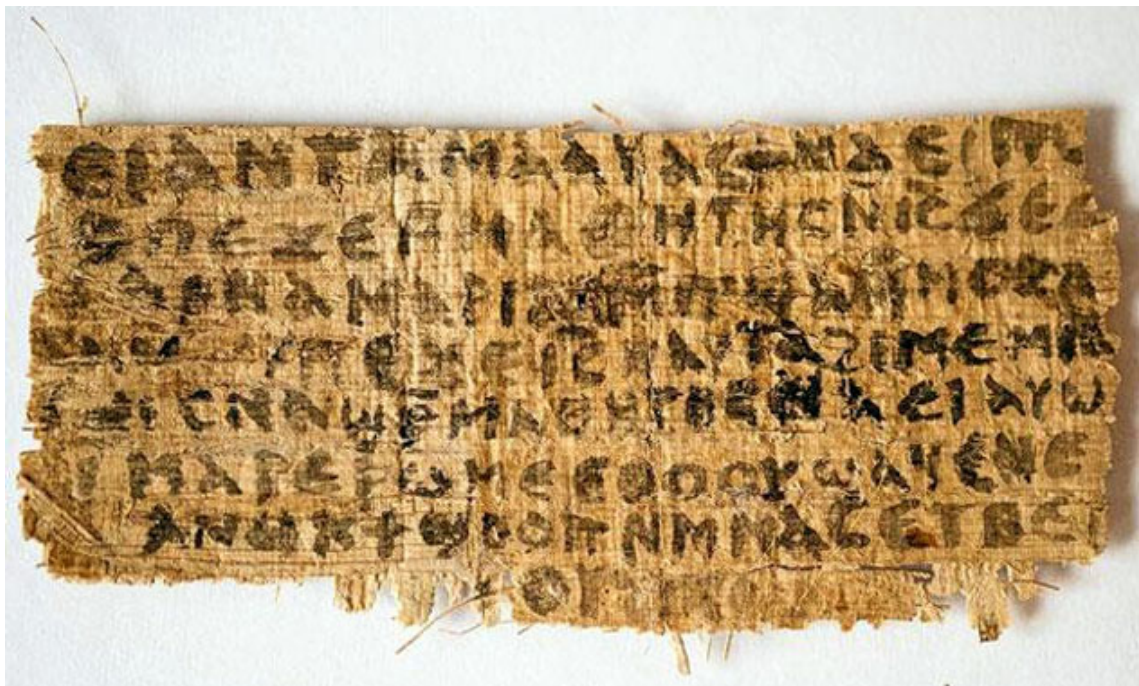 ⲉⲓ ⲁⲛ ⲧⲁⲙⲁⲁⲩ ⲁⲥϯ ⲛⲁⲉⲓ
ⲡⲉϫⲉ ⲙⲙⲁⲑⲏⲧⲏⲥ ⲛⲓⲥ ϫⲉ
ⲁⲣⲛⲁ ⲙⲁⲣⲓⲁⲙ
ⲡⲉϫⲉ ⲓⲥ ⲛⲁⲩ ⲧⲁϩⲓⲙⲉ ⲙⲛ
ⲥⲛⲁϣⲣⲙⲁⲑⲏⲧⲏⲥ ⲛⲁⲉⲓ ⲁⲩⲱ
ⲓ ⲙⲁⲣⲉⲣⲱⲙⲉ ⲉⲑⲟⲟⲩ ϣⲁϥⲉ ⲛⲉ
ⲁⲛⲟⲕ ϯϣⲟⲟⲡ ⲛⲙⲙⲁⲥ ⲉⲧⲃⲉ